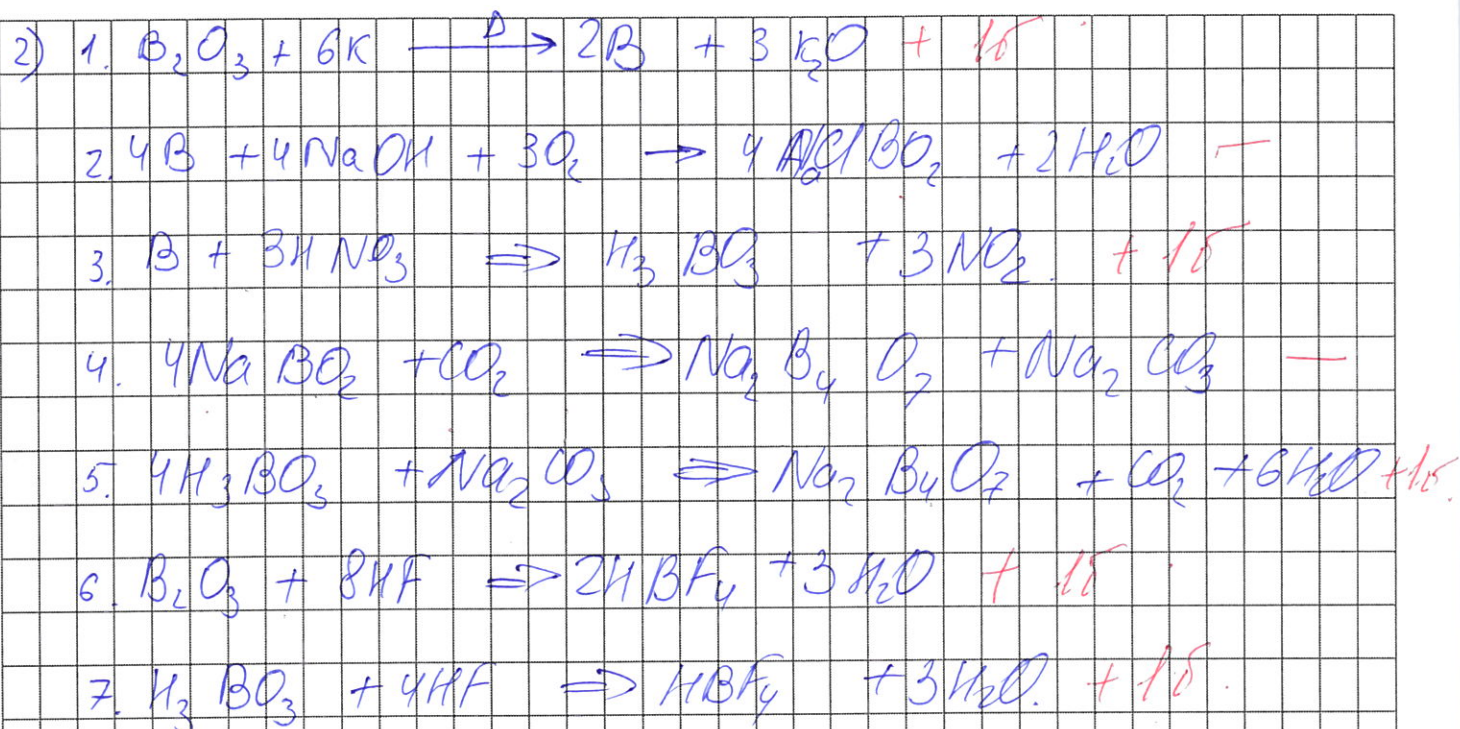 2) 1. B₂O₃ + 6K —Δ→ 2B + 3K₂O + 1б
2. 4B + 4NaOH + 3O₂ → 4 NaBO₂ + 2H₂O —
3. B + 3HNO₃ ⇒ H₃BO₃ + 3NO₂. + 1б
4. 4NaBO₂ + CO₂ ⇒ Na₂B₄O₇ + Na₂CO₃ —
5. 4H₃BO₃ + Na₂CO₃ ⇒ Na₂B₄O₇ + CO₂ + 6H₂O + 1б.
6. B₂O₃ + 8HF ⇒ 2HBF₄ + 3H₂O + 1б
7. H₃BO₃ + 4HF ⇒ HBF₄ + 3H₂O. + 1б.